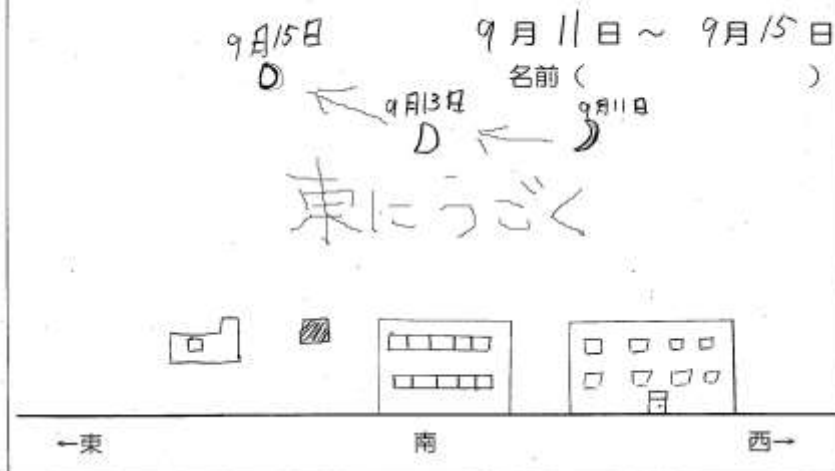 9月15日
9月11日～9月15日
名前（　　　）
9月13日
9月11日
東にうごく
←東
南
西→